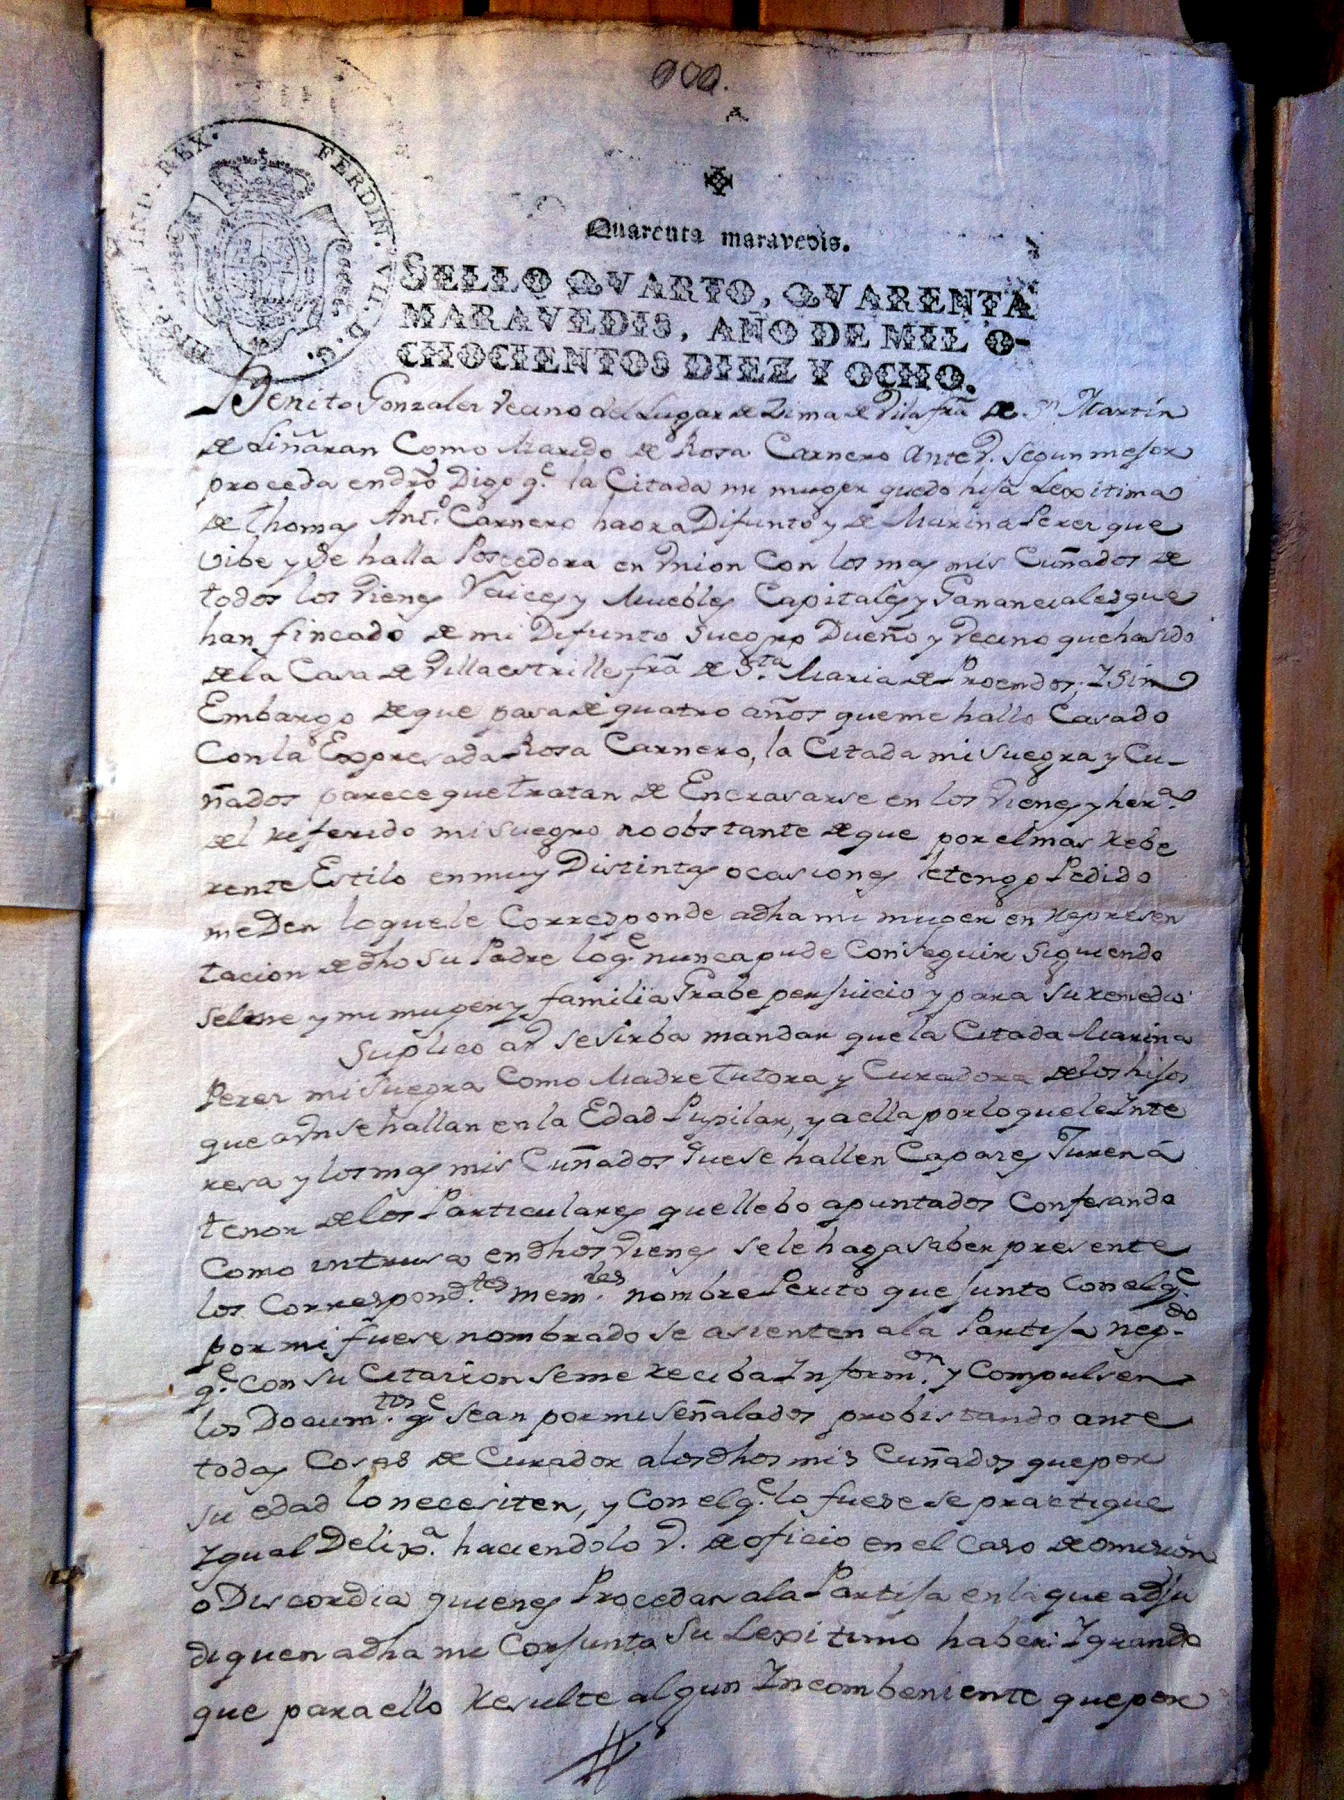 000.
HISP. ET IND. REX. FERDIN. VII. D. G.
Quarenta maravedis.
SELLO QVARTO, QVARENTA
MARAVEDIS, AÑO DE MIL O-
CHOCIENTOS DIEZ Y OCHO.
Benito Gonzalez vecino del Lugar de Lima de Vila frã de Sn Martin
de Liñaran Como Marido de Rosa Carnero Ante V. segun mejor
proceda en dro Digo q.e la Citada mi muger quedo hija Lexitima
de Thomas Ant.o Carnero haora Difunto y de Marina Perez que
vibe y se halla Poseedora en Vnion Con los mas mis Cuñados de
todos los vienes Raices y Muebles Capitales y Gananciales que
han fincado de mi Difunto Suegro Dueño y vecino que ha sido
de la Casa de Villaestrille frã de S.ta Maria de Proendos; Y Sin
Embargo de que pasa de quatro años que me hallo Casado
Con la Expresada Rosa Carnero, la Citada mi suegra y Cu-
ñados parece que tratan de Encrasarse en los vienes y her.a
del referido mi suegro no obstante de que por el mas Rebe
rente Estilo en muy Distintas ocasiones le tengo Pedido
me Den lo que le Corresponde a dha mi muger en represen
tacion de dho su Padre lo q.e nunca pude Conseguir siguiendo
seleme y mi muger y familia Grabe perjuicio y para su remedio
Suplico a V se sirba mandar que la Citada Marina
Perez mi suegra Como Madre Tutora y Curadora de los hijos
que aVn se hallan en la Edad Pupilar, y a ella por lo que le Inte
resa y los mas mis Cuñados que se hallen Capares Juren á
tenor de los Particulares que llebo apuntados Confesando
Como intrusa en dhos vienes se le haga saber presente
los Correspond.tes mem.les nombre Perito que junto Con el q.e
por mi fuere nombrado se asienten a la Partija neg.do
q.e con su Citacion se me reciba Inform.on y Compulsen
los Docum.tos q.e sean por mi señalados probistando ante
todas Cosas de Curador a los dhos mis Cuñados que por
su edad lo necesiten, y Con el q.e lo fuere se practique
Igual Delix.a haciendolo V. de oficio en el Caso de omision
o Discordia quienes Procedan a la Partija en la que adju
diquen a dha mi Conjunta Su Lexitimo haber: Y quando
que para ello Resulte algun Incombeniente que por